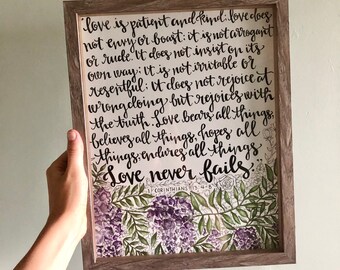 love is patient and kind; love does
not envy or boast; it is not arrogant
or rude. It does not insist on its
own way; it is not irritable or
resentful; it does not rejoice at
wrongdoing but rejoices with
the truth. Love bears all things,
believes all things, hopes all
things, endures all things.
Love never fails.
1 CORINTHIANS 13:4-8